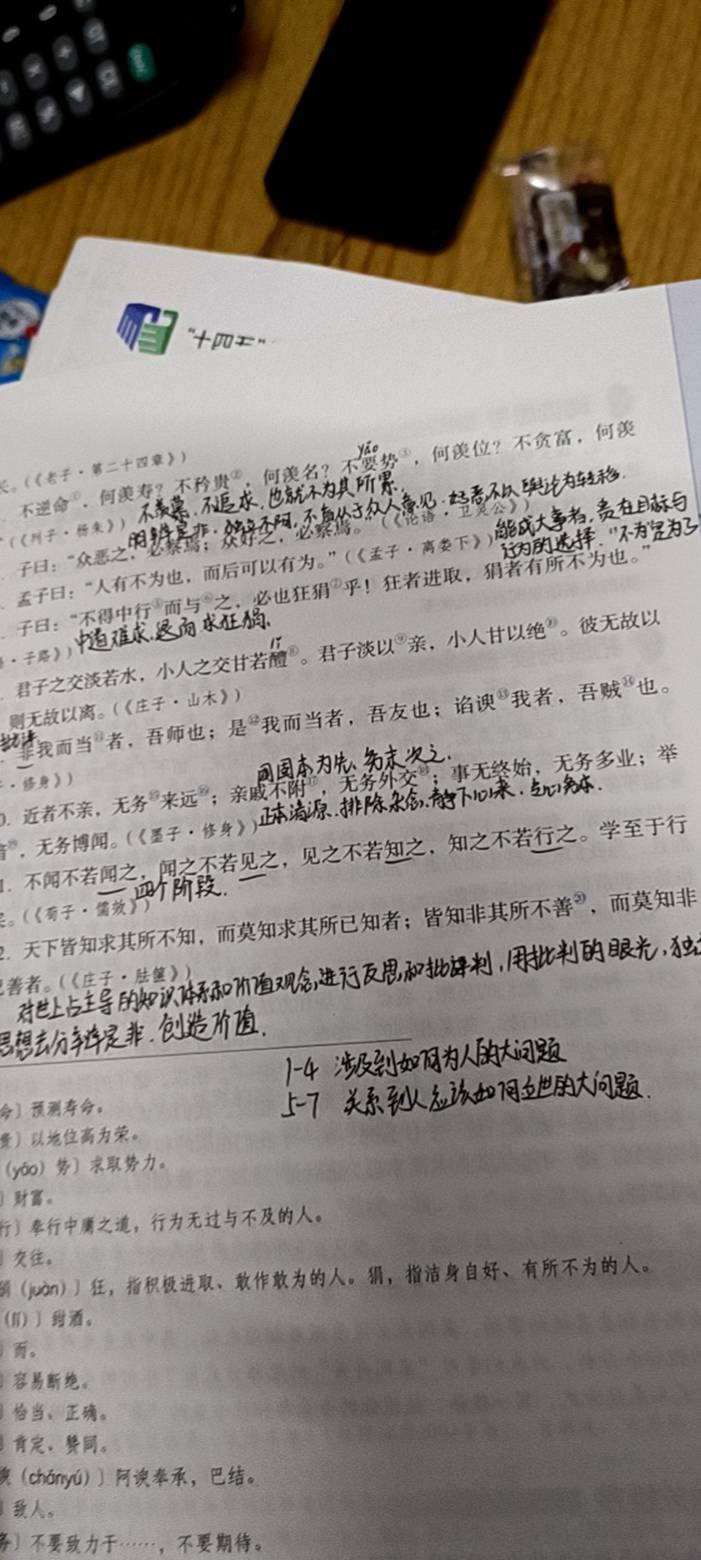 "十四五"
长。(《老子·第二十四章》)
yāo
不逆命①,何羡寿?不矜贵②,何羡名?不要势③,何羡位?不贪富,何羡
不羡慕,不追求,也就不为其所累.
(《列子·杨朱》)
明辨是非
子曰:“众恶之,必察焉;众好之,必察焉。”(《论语·卫灵公》)
能成大事者,贵在目标与
行为的选择.“不为”是为了
孟子曰:“人有不为也,而后可以有为。”(《孟子·离娄下》)
子曰:“不得中行⑤而与⑥之,必也狂狷⑦乎!狂者进取,狷者有所不为也。”
·子路》)
中道难求,退而求狂狷.
君子之交淡若水,小人之交甘若醴⑧。君子淡以⑨亲,小人甘以绝⑩。彼无故以
则无故以离。(《庄子·山木》)
非我而当⑪者,吾师也;是⑫我而当者,吾友也;谄谀⑬我者,吾贼⑭也。
·修身》)
固本为先,务末次之.
0. 近者不亲,无务⑮来远⑯;亲戚不附⑰,无务外交⑱;事无终始,无务多业;举
正本清源.排除杂念,静下心来.专心务本.
,无务博闻。(《墨子·修身》)
1. 不闻不若闻之,闻之不若见之,见之不若知之,知之不若行之。学至于行
四个阶段.
(《荀子·儒效》)
2. 天下皆知求其所不知,而莫知求其所已知者;皆知非其所不善⑳,而莫知非
善者。(《庄子·胠箧》)
对世上占主导的知识体系和价值观念,进行反思和批评判,用批判的眼光,独立
思想去分辨是非.创造价值.
1-4 涉及到如何为人的大问题
5-7 关系到人应该如何立世的大问题.
命〕预测寿命。
贵〕以地位高为荣。
(yāo)势〕求取势力。
〕财富。
行〕奉行中庸之道,行为无过与不及的人。
〕交往。
狷(juàn)〕狂,指积极进取、敢作敢为的人。狷,指洁身自好、有所不为的人。
(lǐ)〕甜酒。
〕而。
〕容易断绝。
〕恰当、正确。
〕肯定、赞同。
谀(chǎnyú)〕阿谀奉承,巴结。
〕敌人。
务〕不要致力于……,不要期待。